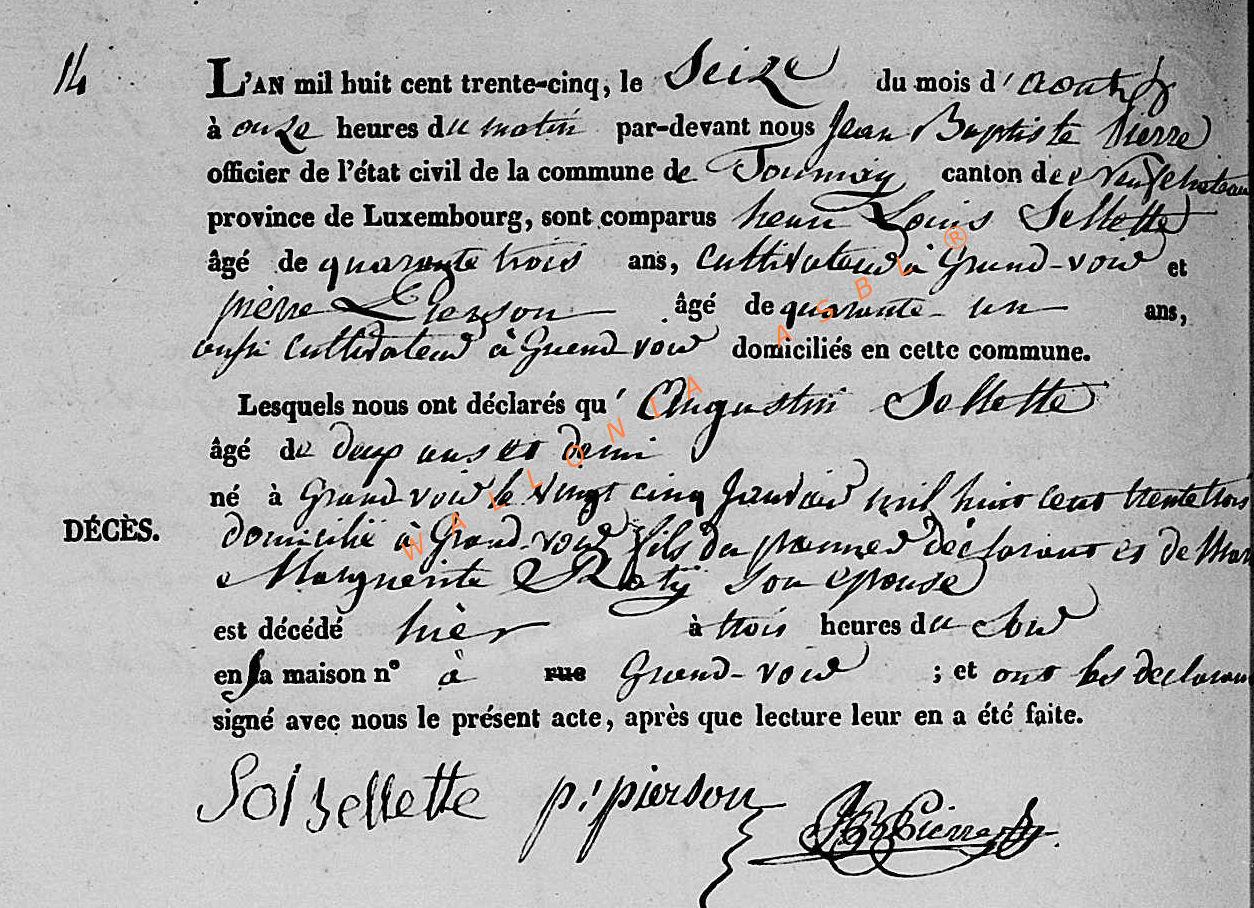 14
L'AN mil huit cent trente-cinq, le Seize du mois d'août
à onze heures du matin par-devant nous Jean Baptiste Pierre
officier de l'état civil de la commune de Tournay canton de neufchateau
province de Luxembourg, sont comparus henri Louis Sellette
âgé de quarante trois ans, cultivateur à Grand-voir et
pièrre Pierson âgé de quarante-un ans,
aussi cultivateur à Grand voir domiciliés en cette commune.
Lesquels nous ont déclarés qu'Augustin Sellette
âgé de deux ans et demi
né à Grand-voir le vingt cinq Janvier mil huit cent trente trois
DÉCÈS.
domicilié à Grand-voir fils du premier déclarant et de Mar
Marguerite son epouse
est décédé hièr à trois heures du Soir
en sa maison n° à rue Grand-voir ; et ont les declarant
signé avec nous le présent acte, après que lecture leur en a été faite.
Sellette p: pierson JB Pierre
WALLONIA ASBL ®